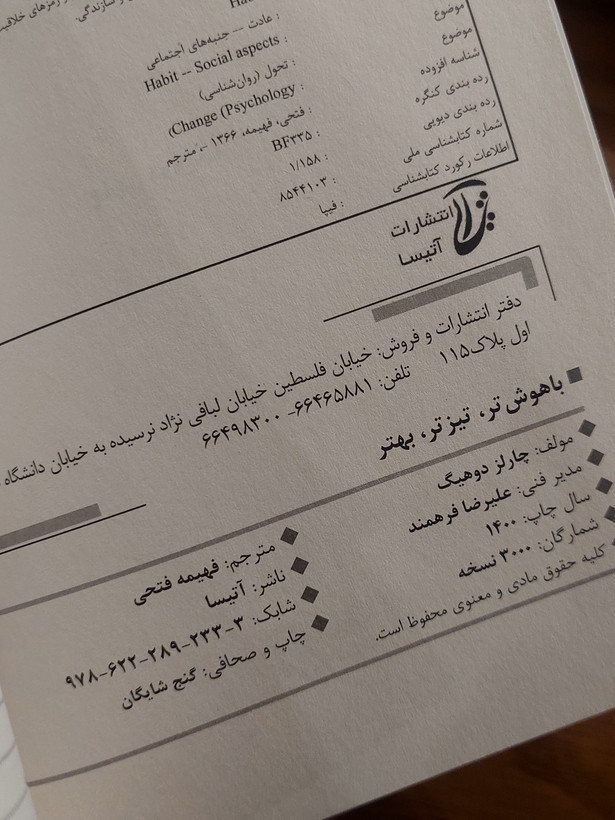 رمزهای خلاقیت
و سازندگی.
: عادت -- جنبه‌های اجتماعی
موضوع : Habit -- Social aspects
موضوع : تحول (روان‌شناسی)
: Change (Psychology)
شناسه افزوده : فتحی، فهیمه، ۱۳۶۶ -، مترجم
رده بندی کنگره : BF۳۳۵
رده بندی دیویی : ۱/۱۵۸
شماره کتابشناسی ملی : ۸۵۴۴۱۰۳
اطلاعات رکورد کتابشناسی : فیپا
انتشارات
آتیسا
دفتر انتشارات و فروش: خیابان فلسطین خیابان لبافی نژاد نرسیده به خیابان دانشگاه
اول پلاک۱۱۵ تلفن: ۶۶۴۶۵۸۸۱- ۶۶۴۹۸۳۰۰
باهوش‌تر، تیزتر، بهتر
مولف: چارلز دوهیگ
مترجم: فهیمه فتحی
مدیر فنی: علیرضا فرهمند
ناشر: آتیسا
سال چاپ: ۱۴۰۰
شابک: ۳-۲۳۳-۲۸۹-۶۲۲-۹۷۸
شمارگان: ۳۰۰۰ نسخه
چاپ و صحافی: گنج شایگان
کلیه حقوق مادی و معنوی محفوظ است.